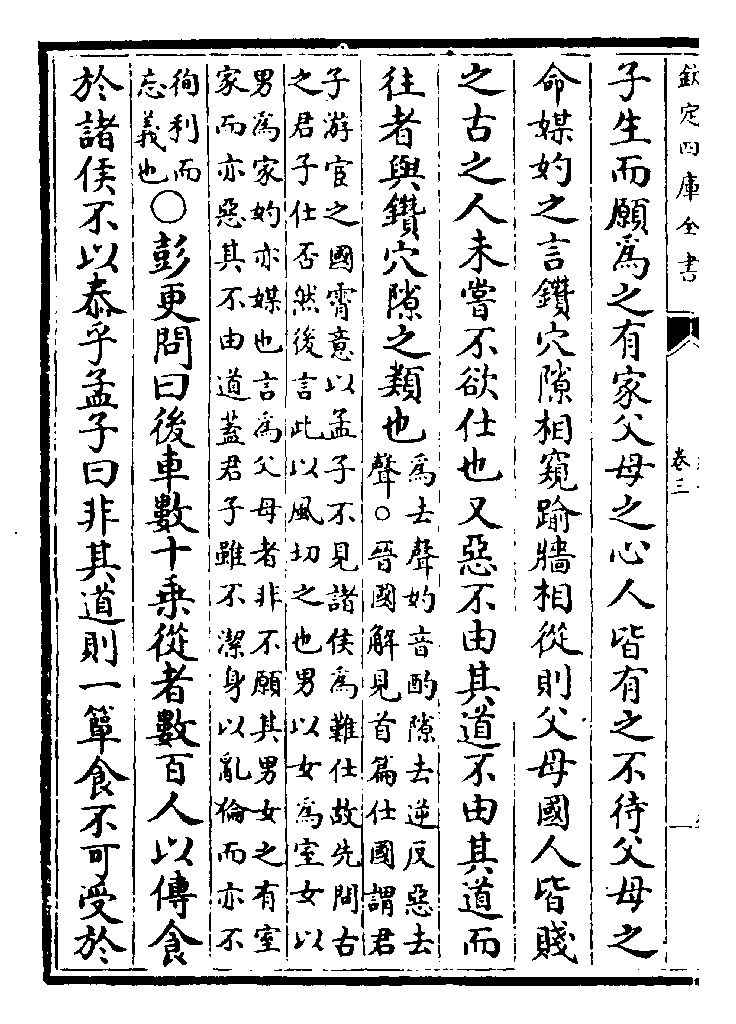 欽定四庫全書 卷三
子生而願爲之有家父母之心人皆有之不待父母之
命媒妁之言鑽穴隙相窺踰牆相從則父母國人皆賤
之古之人未嘗不欲仕也又惡不由其道不由其道而
往者與鑽穴隙之類也
爲去聲妁音酌隙去逆反惡去
聲○晉國解見首篇仕國謂君
子游宦之國霄意以孟子不見諸侯爲難仕故先問古
之君子仕否然後言此以風切之也男以女爲室女以
男爲家妁亦媒也言爲父母者非不願其男女之有室
家而亦惡其不由道蓋君子雖不潔身以亂倫而亦不
徇利而
忘義也
○彭更問曰後車數十乘從者數百人以傳食
於諸侯不以泰乎孟子曰非其道則一簞食不可受於